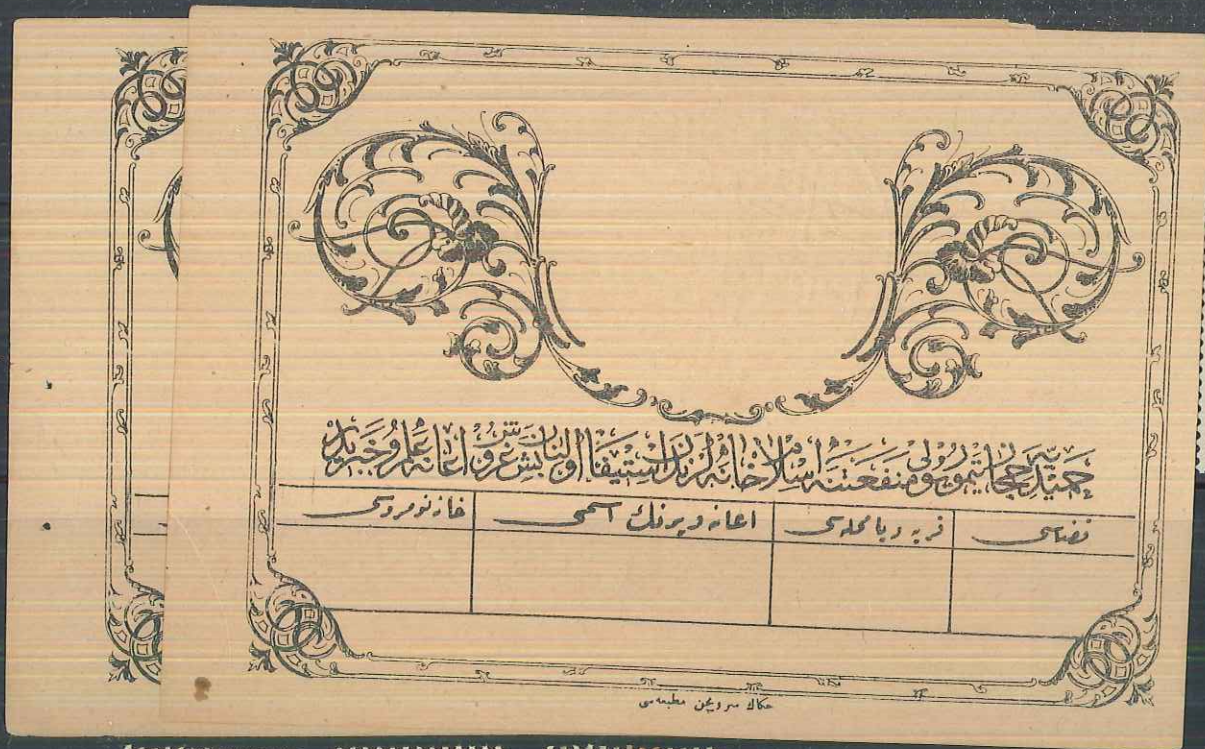 حميديه حجاز تيمور يولى منفعتنه اسلام خانه لرندن استيفا اولنان بش غروش اعانه علم و خبريدر
قضاسى
قريه ويا محله سى
اعانه ويرنك اسمى
خانه نومروسى
حكاك سرويچن مطبعه سى